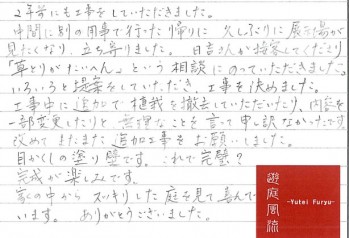 2年前にも工事をしていただきました。
中間に別の用事で行った帰りに 久しぶりに展示場が
見たくなり、立ち寄りました。日吉さんが接客してくださり
「草とりがたいへん」という相談にのっていただきました。
いろいろと提案をしていただき、工事を決めました。
工事中に追加で植栽を撤去していただいたり、内容を
一部変更したりと無理なことを言って申し訳なかったです。
改めてまたまた追加工事をお願いしました。
目かくしの塗り壁です。これで完璧?
完成が楽しみです。
家の中から スッキリした庭を見て喜んで
います。 ありがとうございました。
遊庭風流
-Yutei Furyu-